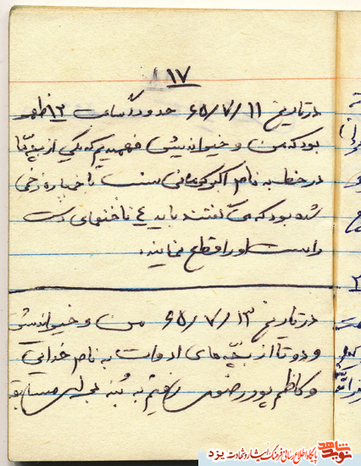 ۱۷
در تاریخ ۶۵/۷/۱۱ حدود ساعت ۱۲ ظهر
بود که من و خیراندیش فهمیدیم که یکی از بچه‌ها
در خط به نام اکبر با خمپاره زخمی
شده بود که می گفتند باید ۴ تا انگشتهای دست
راست او را قطع نمایند.
در تاریخ ۶۵/۷/۱۳ من و خیراندیش
و دو تا از بچه های ادوات به نام خدایی
و کاظم پور رضوی رفتیم به بُنه برای مسابقه
پایگاه اطلاع رسانی فرهنگ ایثار و شهادت یزد
نوید شاهد